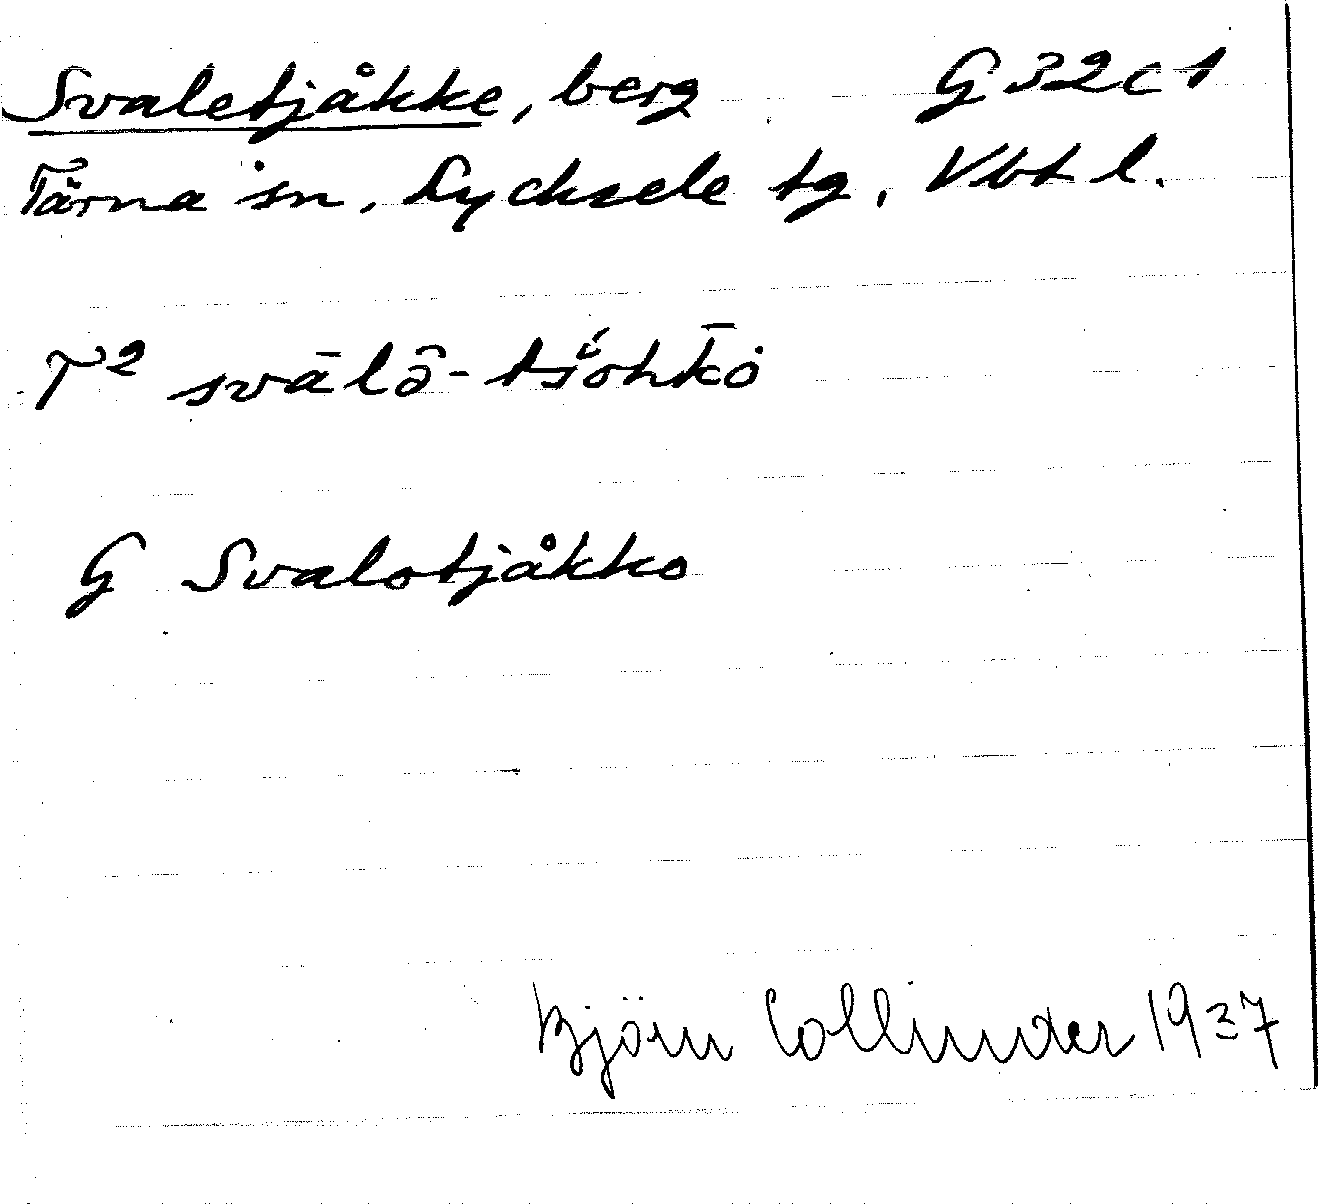 Svaletjåkke, berg G 32 c 1
Tärna sn, Lycksele tg, Vbt l.
T² svālô-tšŏ́hk̄ȯ
G Svalotjåkko
Björn Collinder 1937